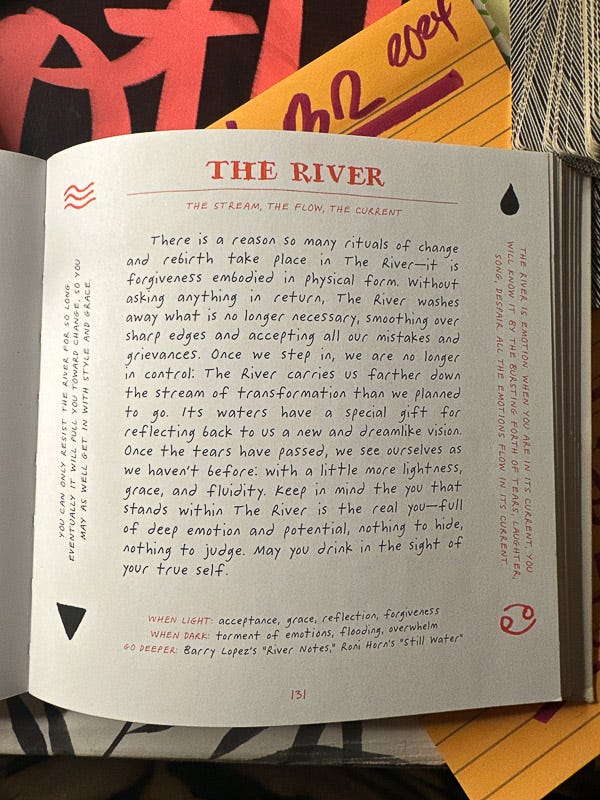 2024
THE RIVER
THE STREAM, THE FLOW, THE CURRENT
There is a reason so many rituals of change
and rebirth take place in The River—it is
forgiveness embodied in physical form. Without
asking anything in return, The River washes
away what is no longer necessary, smoothing over
sharp edges and accepting all our mistakes and
grievances. Once we step in, we are no longer
in control: The River carries us farther down
the stream of transformation than we planned
to go. Its waters have a special gift for
reflecting back to us a new and dreamlike vision.
Once the tears have passed, we see ourselves as
we haven't before: with a little more lightness,
grace, and fluidity. Keep in mind the you that
stands within The River is the real you—full
of deep emotion and potential, nothing to hide,
nothing to judge. May you drink in the sight of
your true self.
YOU CAN ONLY RESIST THE RIVER FOR SO LONG.
EVENTUALLY IT WILL PULL YOU TOWARD CHANGE, SO YOU
MAY AS WELL GET IN WITH STYLE AND GRACE.
THE RIVER IS EMOTION. WHEN YOU ARE IN ITS CURRENT, YOU
WILL KNOW IT BY THE BURSTING FORTH OF TEARS, LAUGHTER,
SONG, DESPAIR. ALL THE EMOTIONS FLOW IN ITS CURRENT.
WHEN LIGHT: acceptance, grace, reflection, forgiveness
WHEN DARK: torment of emotions, flooding, overwhelm
GO DEEPER: Barry Lopez's "River Notes," Roni Horn's "Still Water"
131